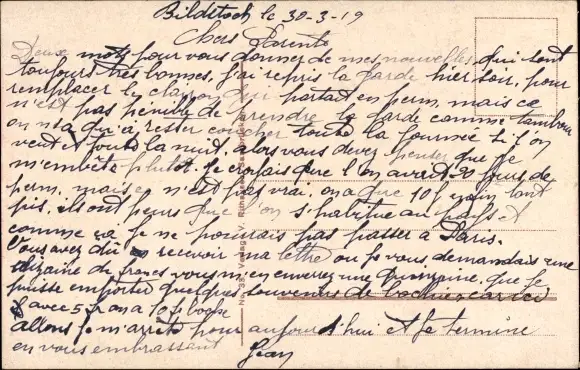 Bildstoch le 30-3-19
Chers Parents
Deux mots pour vous donner de mes nouvelles qui sont
toujours très bonnes, j'ai repris la garde hier soir, pour
remplacer le clairon qui partait en perm, mais ce
n'est pas pénible de prendre la garde comme tambour
on n'a qu'a rester coucher toute la journée si l'on
veut et toute la nuit, alors vous devez penser que je
m'embête plutot. Je croyais que l'on avait 20 jours de
perm, mais ce n'est pas vrai, on a que 10 j
pis, ils ont peurs que l'on s'habitue au pays et
comme ça je ne pourrais pas passer a Paris.
Vous avez dû recevoir ma lettre ou je vous demandais une
dizaine de francs vous m'en enverrez une quinzaine, que je
puisse emporter quelques souvenirs de boche, car ici
avec 5 f on a 10 f boche
allons je m'arrête pour aujourd'hui et je termine
en vous embrassant
Jean